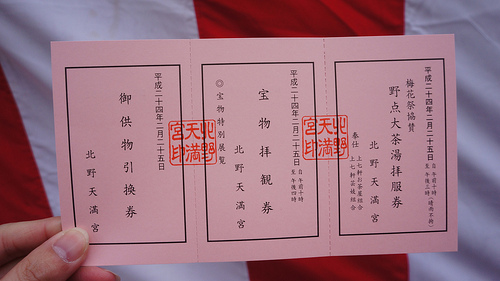 平成二十四年二月二十五日 自 午前十時 至 午後三時 (晴雨不拘)
梅花祭協賛
野点大茶湯拝服券
北野天満宮
奉仕 上七軒お茶屋組合 上七軒芸妓組合
北野天満宮印
平成二十四年二月二十五日 自 午前十時 至 午後四時
宝物拝観券
北野天満宮
◎宝物特別展覧
北野天満宮印
平成二十四年二月二十五日
御供物引換券
北野天満宮